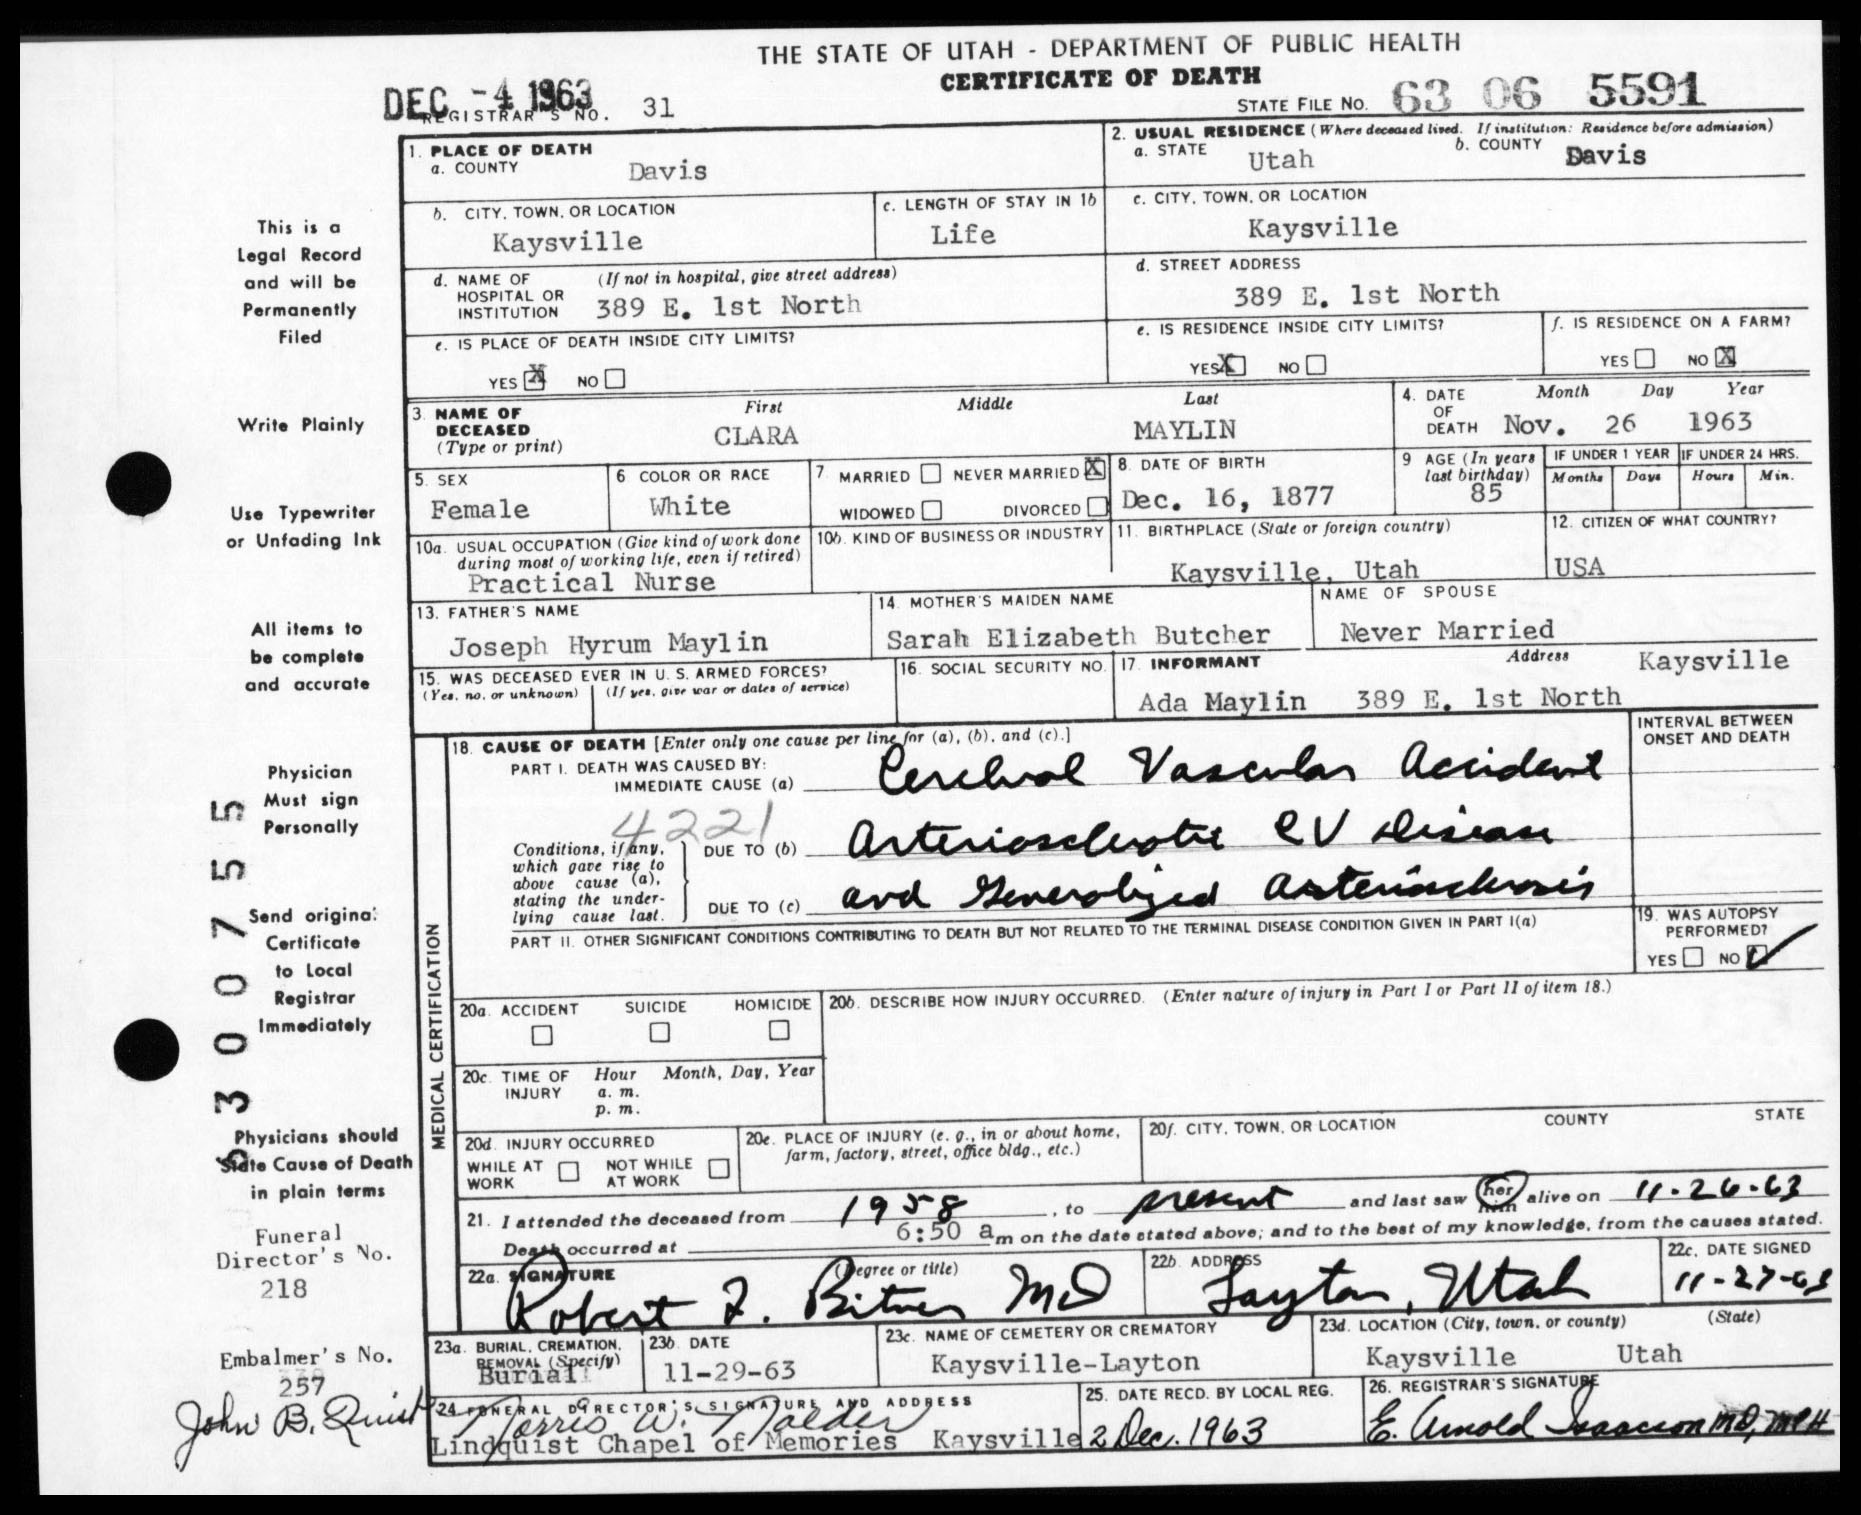 THE STATE OF UTAH - DEPARTMENT OF PUBLIC HEALTH
CERTIFICATE OF DEATH
DEC -4 1963
REGISTRAR'S NO. 31
STATE FILE NO. 63 06 5591
1. PLACE OF DEATH
a. COUNTY Davis
2. USUAL RESIDENCE (Where deceased lived. If institution: Residence before admission)
a. STATE Utah b. COUNTY Davis
b. CITY, TOWN, OR LOCATION Kaysville
c. LENGTH OF STAY IN 1b Life
c. CITY, TOWN, OR LOCATION Kaysville
d. NAME OF HOSPITAL OR INSTITUTION (If not in hospital, give street address) 389 E. 1st North
d. STREET ADDRESS 389 E. 1st North
e. IS PLACE OF DEATH INSIDE CITY LIMITS?
YES X NO
e. IS RESIDENCE INSIDE CITY LIMITS?
YES X NO
f. IS RESIDENCE ON A FARM?
YES NO X
3. NAME OF DECEASED (Type or print)
First Middle Last
CLARA MAYLIN
4. DATE OF DEATH Month Day Year
Nov. 26 1963
5. SEX Female
6 COLOR OR RACE White
7. MARRIED NEVER MARRIED X
WIDOWED DIVORCED
8. DATE OF BIRTH Dec. 16, 1877
9 AGE (In years last birthday) 85
IF UNDER 1 YEAR Months Days
IF UNDER 24 HRS. Hours Min.
10a. USUAL OCCUPATION (Give kind of work done during most of working life, even if retired)
Practical Nurse
10b. KIND OF BUSINESS OR INDUSTRY
11. BIRTHPLACE (State or foreign country)
Kaysville, Utah
12. CITIZEN OF WHAT COUNTRY?
USA
13. FATHER'S NAME
Joseph Hyrum Maylin
14. MOTHER'S MAIDEN NAME
Sarah Elizabeth Butcher
NAME OF SPOUSE
Never Married
15. WAS DECEASED EVER IN U. S. ARMED FORCES?
(Yes, no, or unknown) (If yes, give war or dates of service)
16. SOCIAL SECURITY NO.
17. INFORMANT Address
Ada Maylin 389 E. 1st North Kaysville
MEDICAL CERTIFICATION
18. CAUSE OF DEATH [Enter only one cause per line for (a), (b), and (c).]
INTERVAL BETWEEN ONSET AND DEATH
PART I. DEATH WAS CAUSED BY:
IMMEDIATE CAUSE (a) Cerebral Vascular Accident
4221
Conditions, if any, which gave rise to above cause (a), stating the underlying cause last.
DUE TO (b) Arteriosclerotic CV Disease
DUE TO (c) and Generalized Arteriosclerosis
PART II. OTHER SIGNIFICANT CONDITIONS CONTRIBUTING TO DEATH BUT NOT RELATED TO THE TERMINAL DISEASE CONDITION GIVEN IN PART I(a)
19. WAS AUTOPSY PERFORMED?
YES NO ✓
20a. ACCIDENT SUICIDE HOMICIDE
20b. DESCRIBE HOW INJURY OCCURRED. (Enter nature of injury in Part I or Part II of item 18.)
20c. TIME OF INJURY Hour Month, Day, Year
a. m.
p. m.
20d. INJURY OCCURRED
WHILE AT WORK NOT WHILE AT WORK
20e. PLACE OF INJURY (e. g., in or about home, farm, factory, street, office bldg., etc.)
20f. CITY, TOWN, OR LOCATION COUNTY STATE
21. I attended the deceased from 1958, to present and last saw her him alive on 11-26-63
Death occurred at 6:50 a m on the date stated above; and to the best of my knowledge, from the causes stated.
22a. SIGNATURE (Degree or title)
Robert F. Bitner MD
22b. ADDRESS
Layton, Utah
22c. DATE SIGNED
11-27-63
23a. BURIAL, CREMATION, REMOVAL (Specify)
Burial
23b. DATE
11-29-63
23c. NAME OF CEMETERY OR CREMATORY
Kaysville-Layton
23d. LOCATION (City, town, or county) (State)
Kaysville Utah
24 FUNERAL DIRECTOR'S SIGNATURE AND ADDRESS
Norris W. Nalder
Lindquist Chapel of Memories Kaysville
25. DATE RECD. BY LOCAL REG.
2 Dec. 1963
26. REGISTRAR'S SIGNATURE
E. Arnold Isaacson MD, MPH
This is a
Legal Record
and will be
Permanently
Filed
Write Plainly
Use Typewriter
or Unfading Ink
All items to
be complete
and accurate
Physician
Must sign
Personally
Send original
Certificate
to Local
Registrar
Immediately
Physicians should
State Cause of Death
in plain terms
6300755
Funeral
Director's No.
218
Embalmer's No.
257
John B. Quist